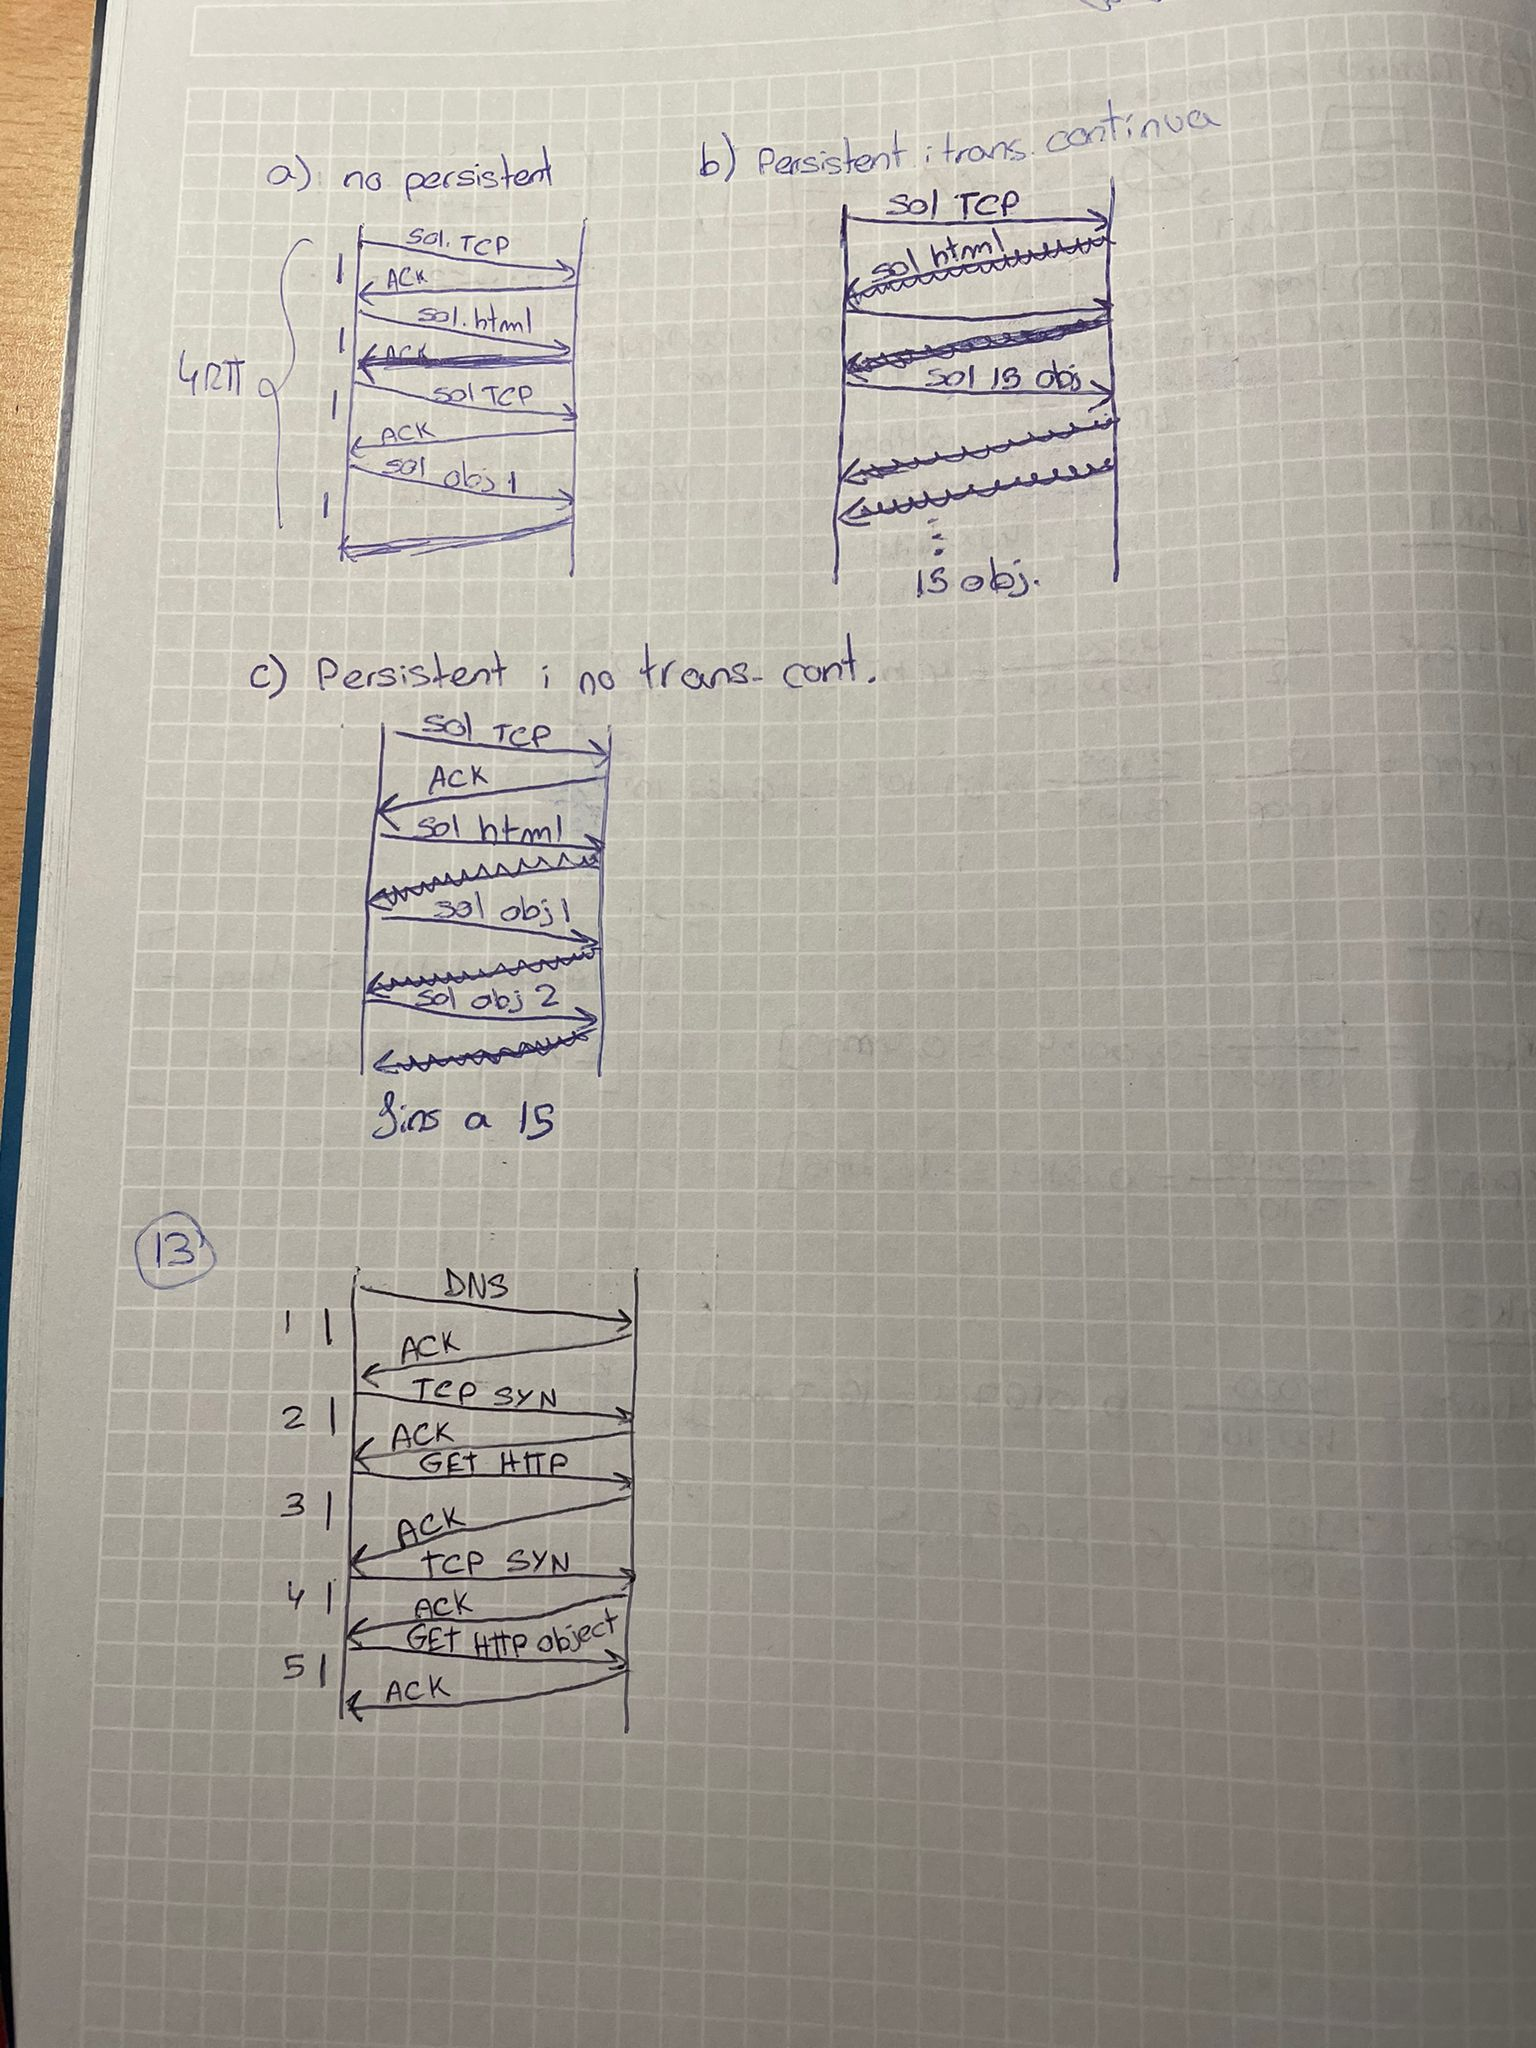 a) no persistent
sol. TCP
1
ACK
sol. html
1
ACK
4RTT
sol TCP
1
ACK
sol obj 1
1
b) Persistent i trans. contínua
sol TCP
sol html
sol 15 obj
15 obj.
c) Persistent i no trans. cont.
sol TCP
ACK
sol html
sol obj 1
sol obj 2
fins a 15
13
DNS
1
ACK
TCP SYN
2
ACK
GET HTTP
3
ACK
TCP SYN
4
ACK
GET HTTP object
5
ACK